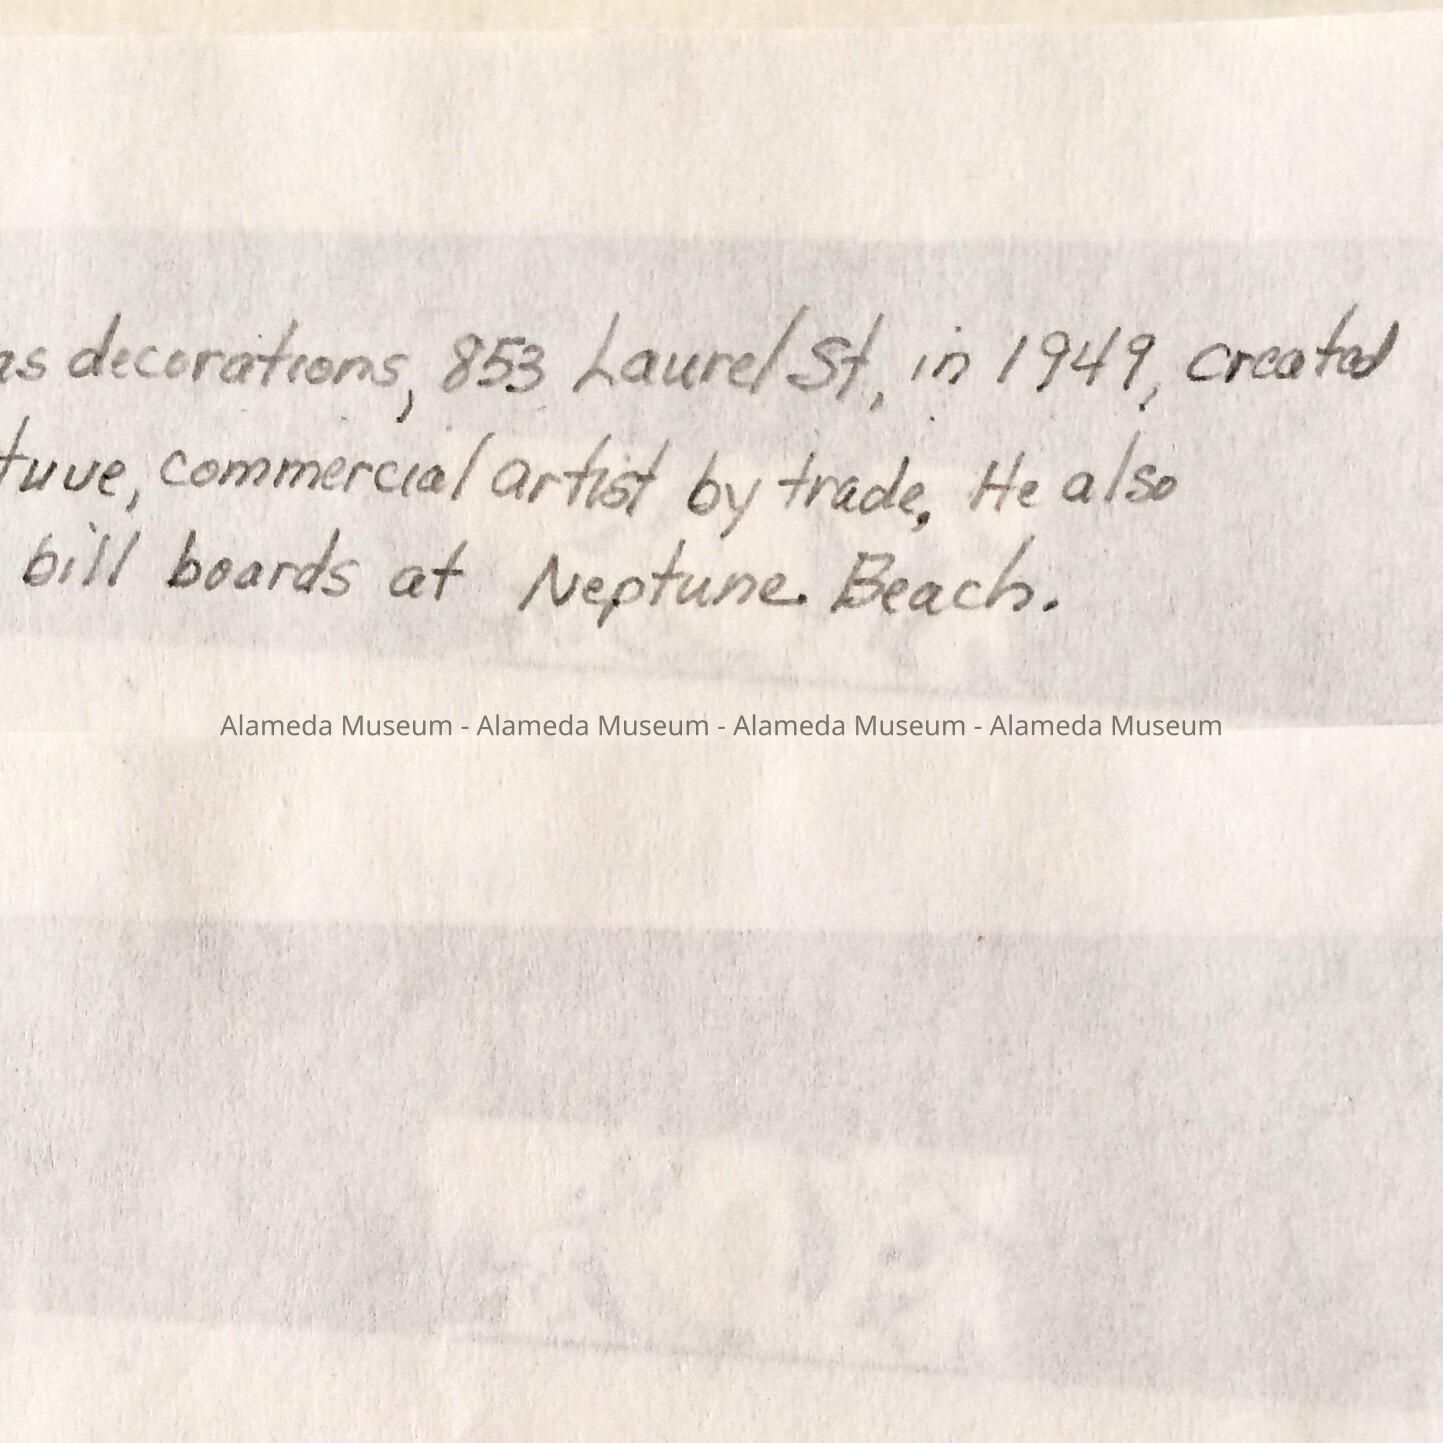 as decorations, 853 Laurel St, in 1949, created
tuve, commercial artist by trade. He also
bill boards at Neptune Beach.
Alameda Museum - Alameda Museum - Alameda Museum - Alameda Museum